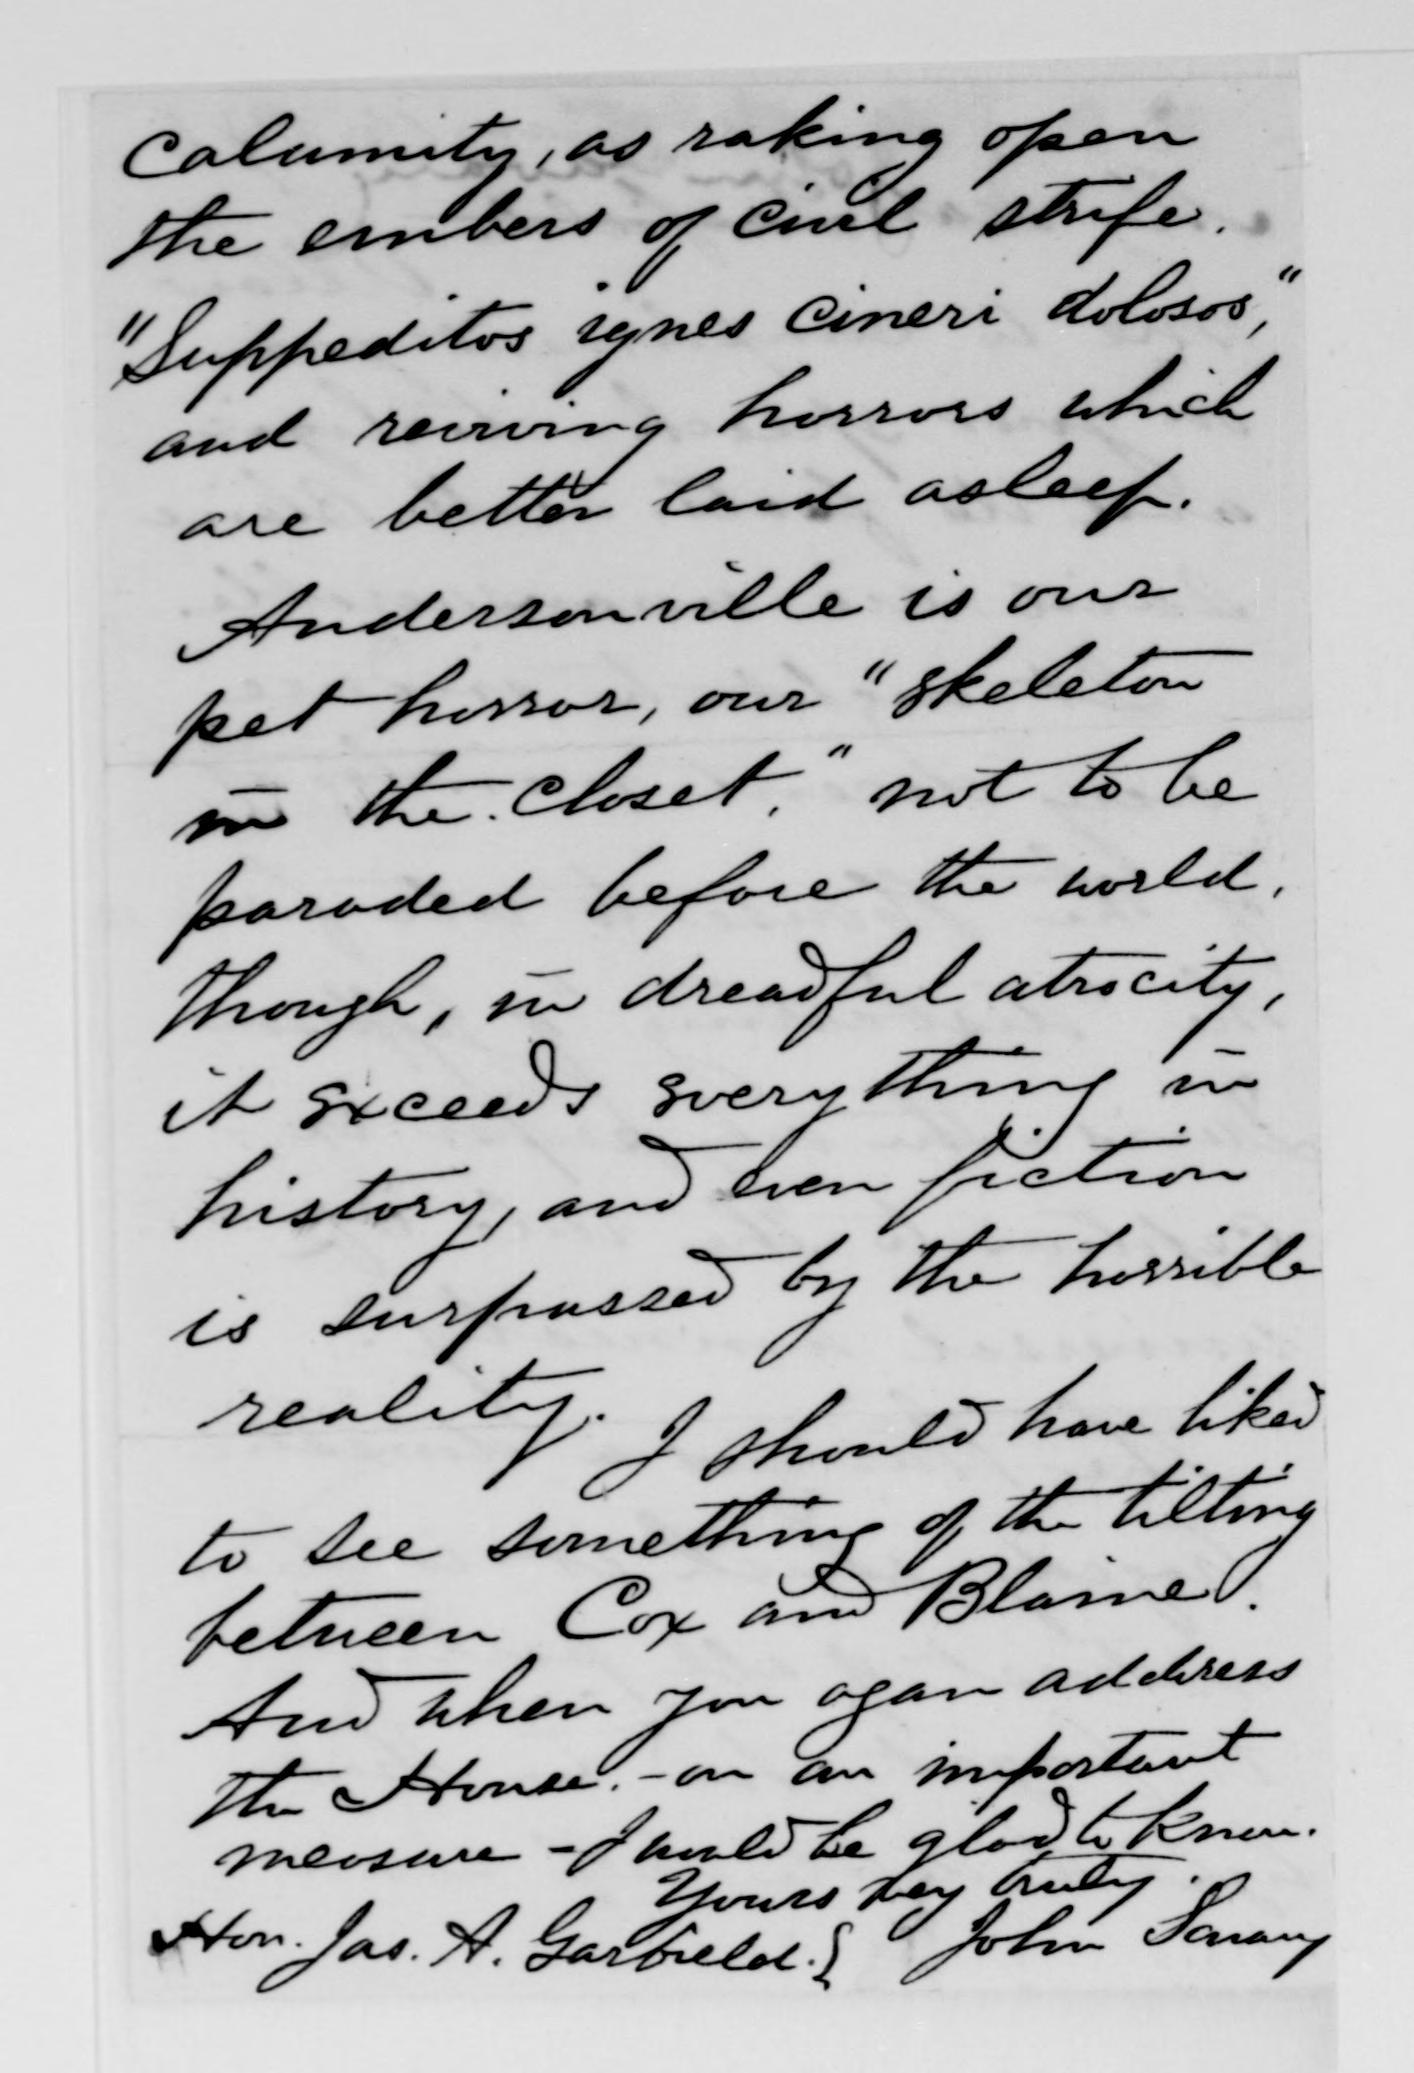 calumity, as raking open
the embers of civil strife.
"Suppeditos ignes cineri dolosos,"
and reviving horrors which
are better laid asleep.
Andersonville is our
pet horror, our "skeleton
in the closet," not to be
paraded before the world,
though, in dreadful atrocity,
it exceeds everything in
history, and even fiction
is surpassed by the horrible
reality. I should have liked
to see something of the tilting
between Cox and Blaine.
And when you again address
the House - on an important
measure - I would be glad to know.
Yours very truly.
Hon. Jas. A. Garfield. } John